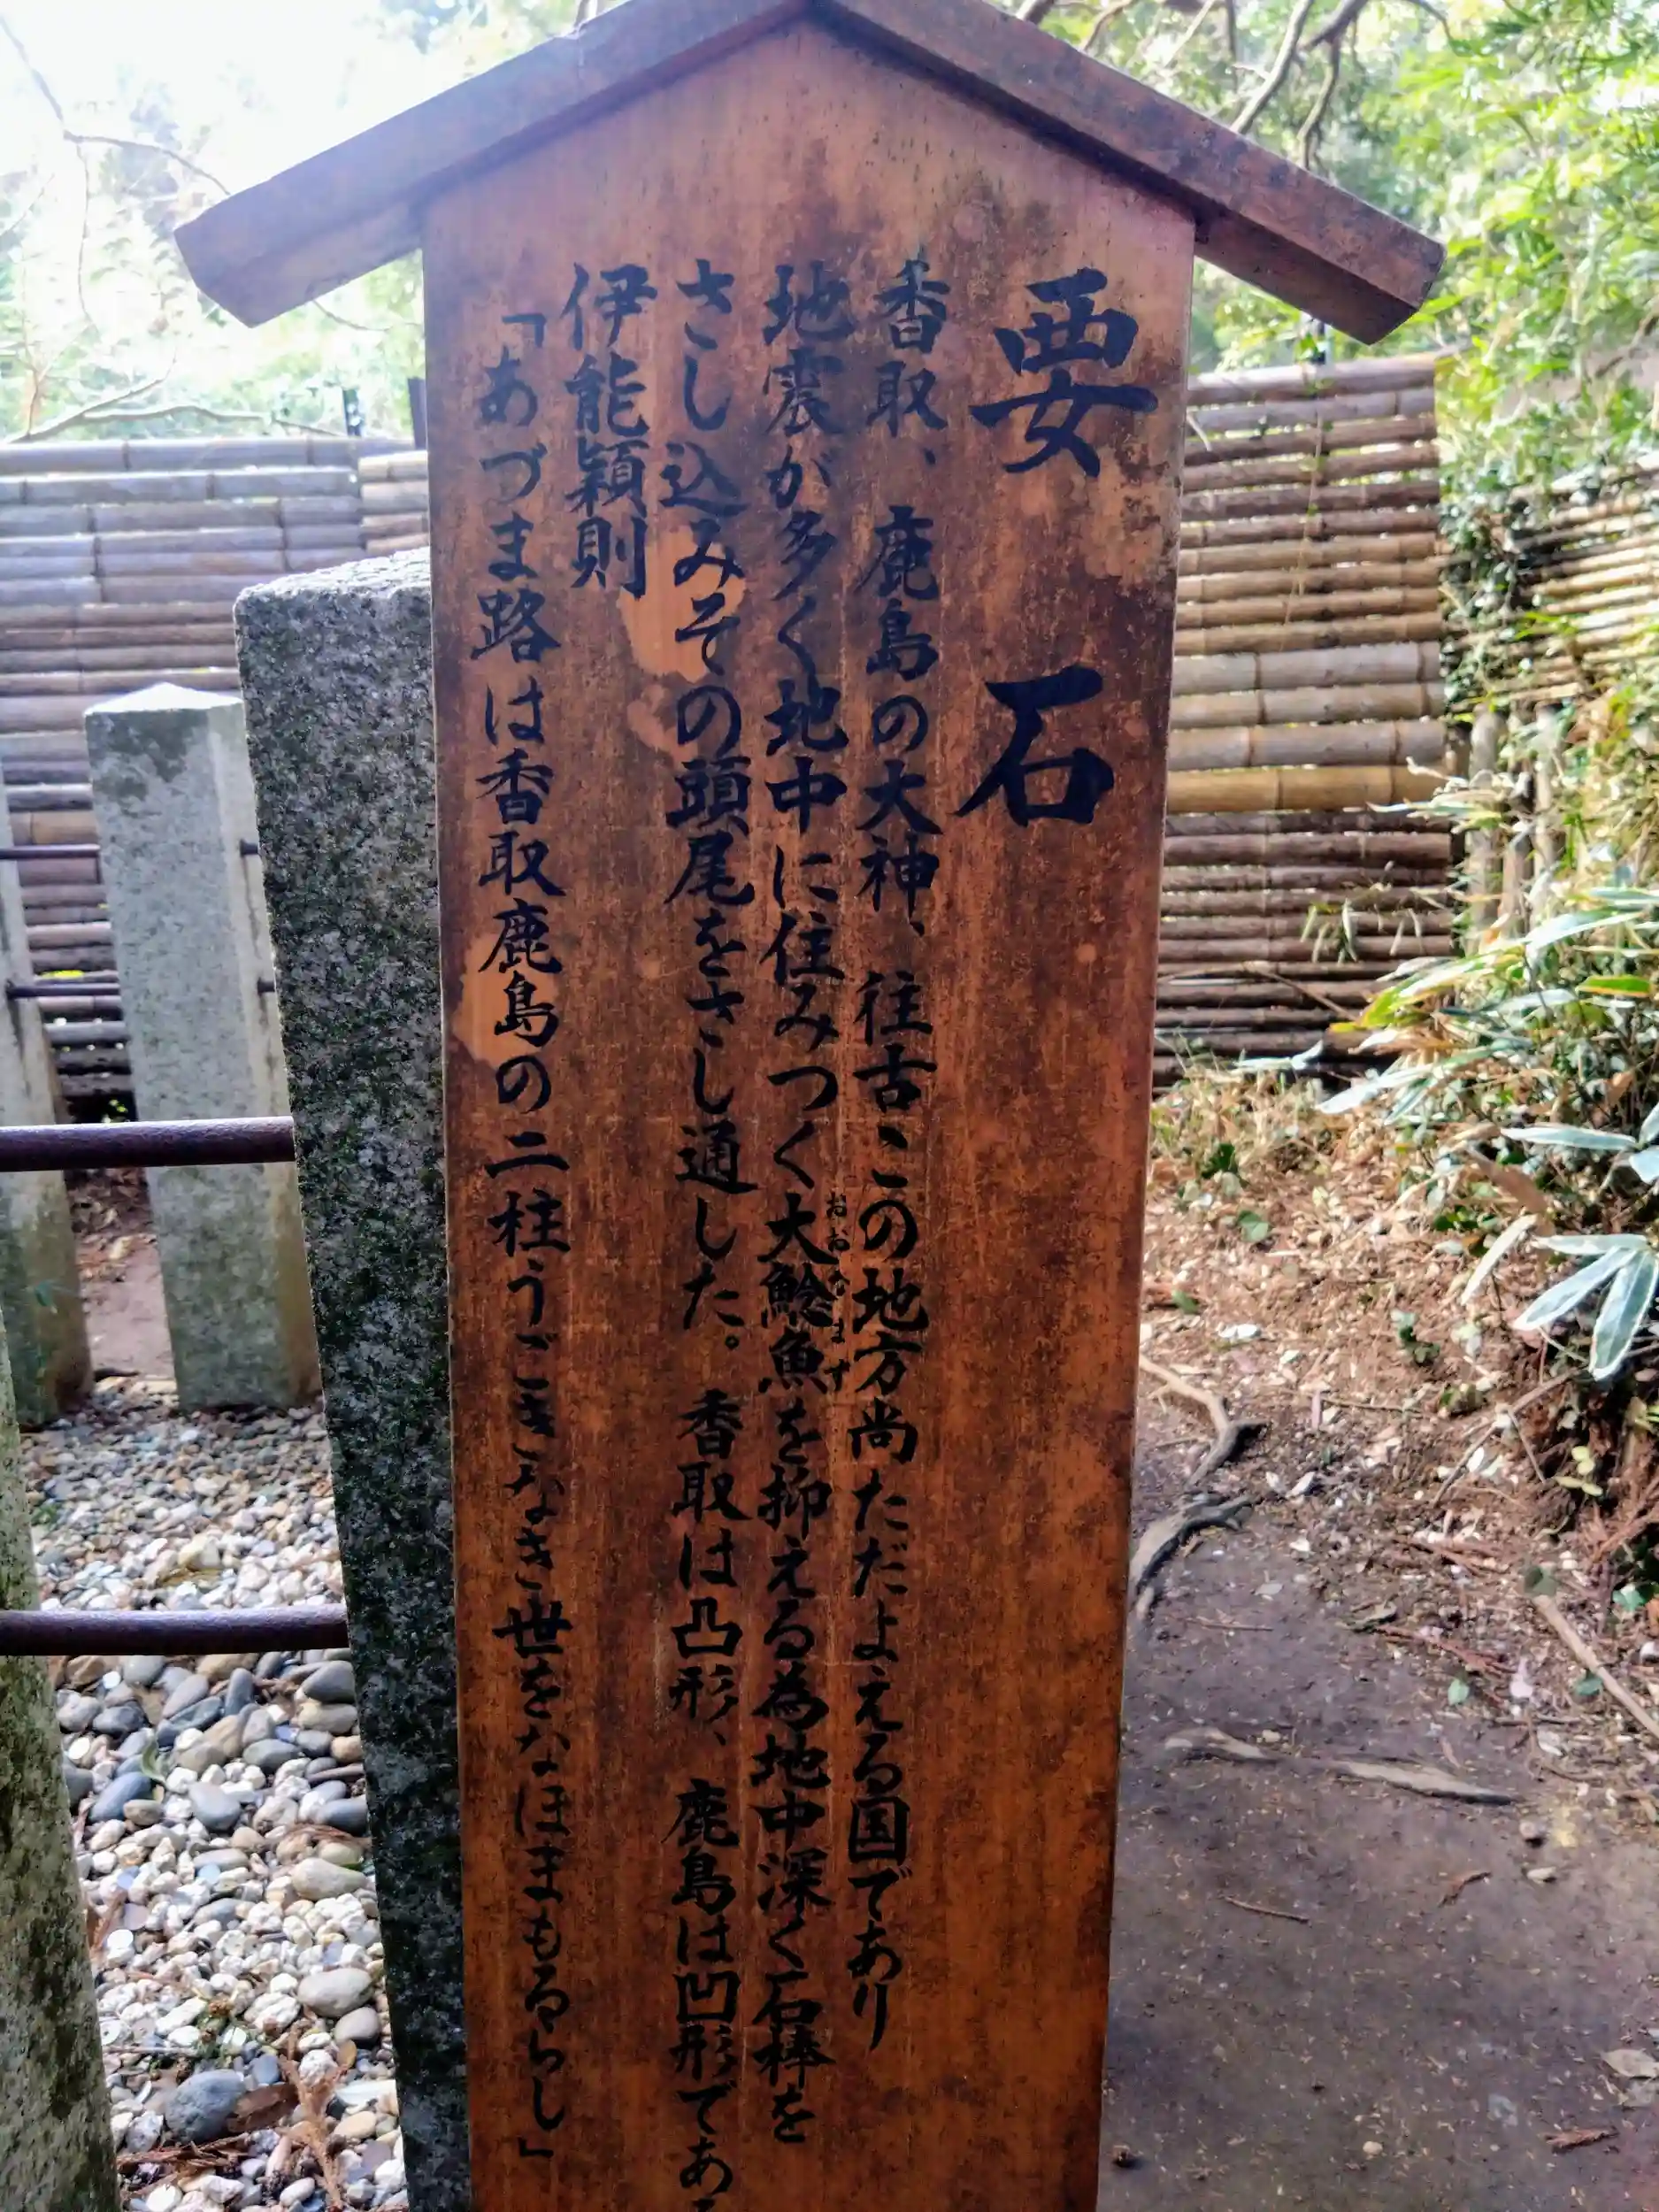 要石
香取、鹿島の大神、往古この地方尚ただよえる国であり
地震が多く地中に住みつく大鯰魚を抑える為地中深く石棒を
おおなまず
さし込みその頭尾をさし通した。香取は凸形、鹿島は凹形であ
伊能穎則
「あづま路は香取鹿島の二柱うごきなき世をなほまもるらし」